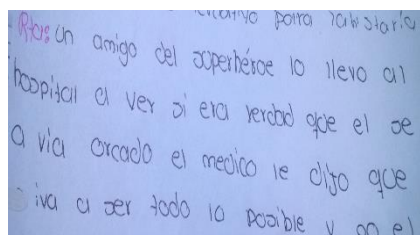 para la historia
Rta: Un amigo del superhéroe lo llevo al
hospital a ver si era verdad que el se
a via orcado el medico le dijo que
iva a ser todo lo posible y